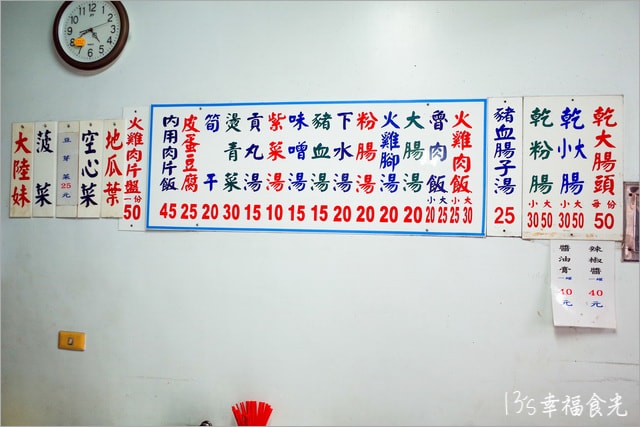 乾大腸頭 每份 50
乾小大腸 30 50
乾粉腸 30 50
辣椒醬 一罐 40元
醬油膏 一罐 10元
豬血腸子湯 25
火雞肉飯 小大 25 30
魯肉飯 小大 20 25
大腸湯 20
火雞腳湯 20
粉腸湯 20
下水湯 20
豬血湯 15
味噌湯 15
紫菜湯 10
貢丸湯 15
燙青菜 30
筍干 20
皮蛋豆腐 25
內用肉片飯 45
火雞肉片盤 一份 50
地瓜葉
空心菜
豆芽菜25元
菠菜
大陸妹
13's幸福食光